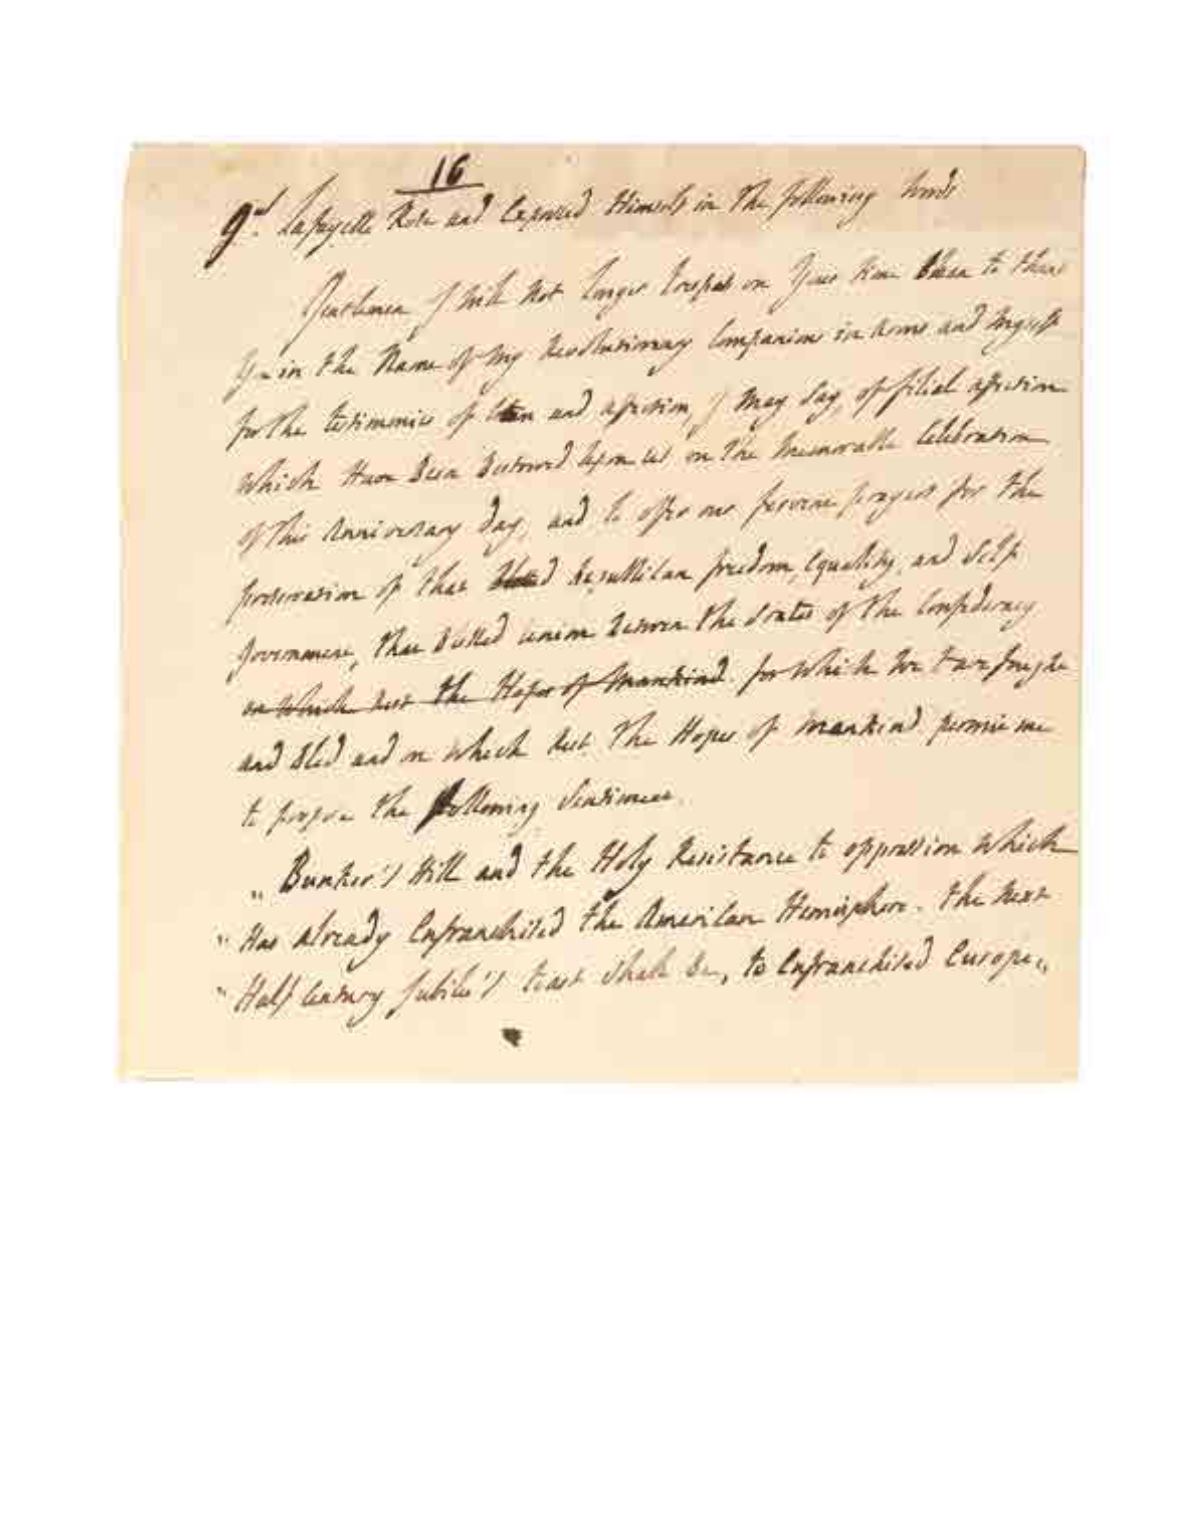 16
Gnl Lafayette Rose and Expressed Himself in the following words
Gentlemen I will not longer trespass on Your time than to thank
You in the Name of My Revolutionary Companions in arms and Myself
for the testimonies of esteem and affection, I may say, of filial affection
Which Have Been Bestowed upon us on the Memorable Celebration
of this anniversary day, and to offer our fervent prayers for the
preservation of that Republican freedom, equality, and Self
Government, that Blessed union Between the States of the Confederacy
on Which rest the Hopes of Mankind. for Which We Have fought
and Bled and on which rest the Hopes of Mankind permit me
to propose the following Sentiment.
„ Bunker's Hill and the Holy Resistance to oppression Which
" Has already Enfranchised the American Hemisphere. the next
" Half Century Jubilee's toast Shall Be, to Enfranchised Europe „